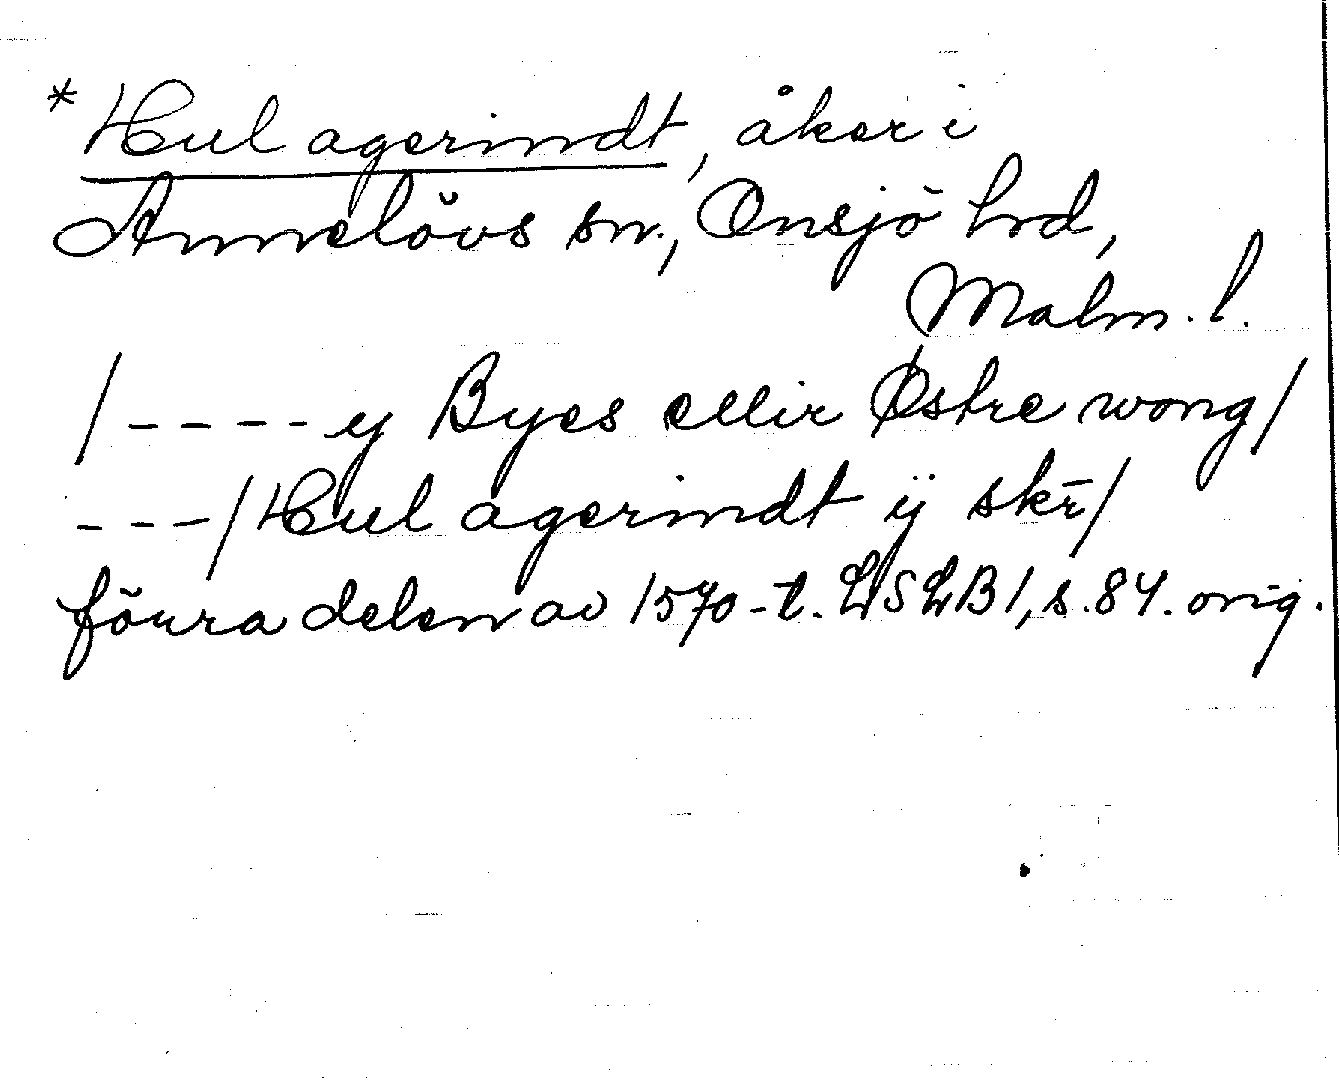 *Hul agerindt, åker i
Annelövs sn., Onsjö hrd,
Malm. l.
/ - - - - y Byes ellir Østre wong/
- - - / Hul agerindt ÿ skr̄/
förra delen av 1570-t. LSLB1, s. 84. orig.